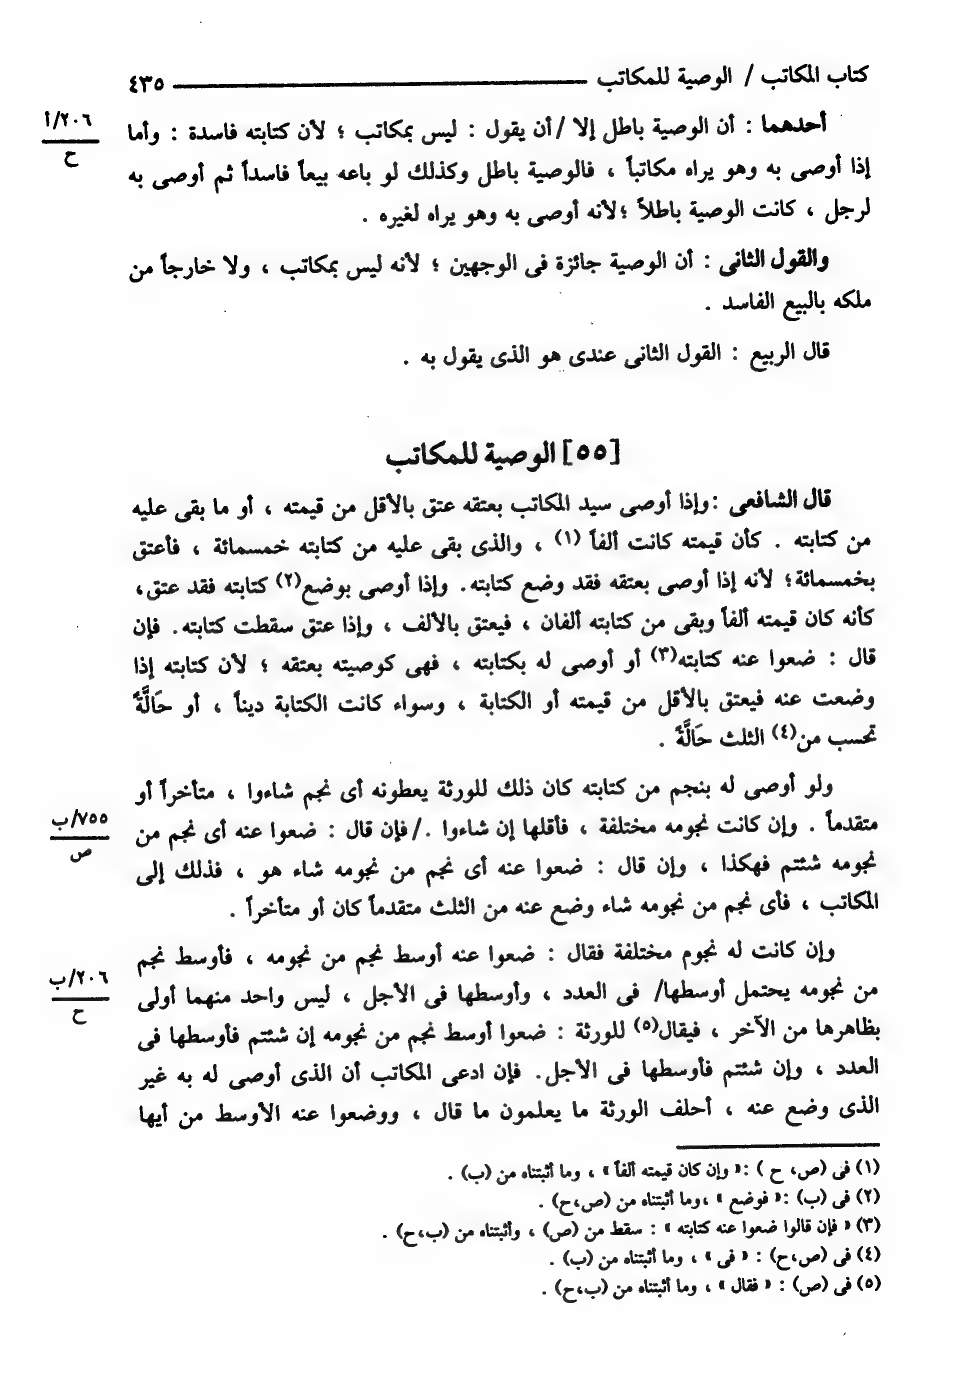 كتاب المكاتب / الوصية للمكاتب ٤٣٥
أحدهما : أن الوصية باطل إلا /أن يقول : ليس بمكاتب ؛ لأن كتابته فاسدة : وأما
٢٠٦/أ
ح
إذا أوصى به وهو يراه مكاتباً ، فالوصية باطل وكذلك لو باعه بيعاً فاسداً ثم أوصى به
لرجل ، كانت الوصية باطلاً ؛لأنه أوصى به وهو يراه لغيره .
والقول الثانى : أن الوصية جائزة فى الوجهين ؛ لأنه ليس بمكاتب ، ولا خارجاً من
ملكه بالبيع الفاسد .
قال الربيع : القول الثانى عندى هو الذى يقول به .
[٥٥] الوصية للمكاتب
قال الشافعى :وإذا أوصى سيد المكاتب بعتقه عتق بالأقل من قيمته ، أو ما بقى عليه
من كتابته . كأن قيمته كانت ألفاً (١) ، والذى بقى عليه من كتابته خمسمائة ، فأعتق
بخمسمائة؛ لأنه إذا أوصى بعتقه فقد وضع كتابته. وإذا أوصى بوضع(٢) كتابته فقد عتق،
كأنه كان قيمته ألفاً وبقى من كتابته ألفان ، فيعتق بالألف ، وإذا عتق سقطت كتابته. فإن
قال : ضعوا عنه كتابته(٣) أو أوصى له بكتابته ، فهى كوصيته بعتقه ؛ لأن كتابته إذا
وضعت عنه فيعتق بالأقل من قيمته أو الكتابة ، وسواء كانت الكتابة ديناً ، أو حَالَّةً
تحسب من(٤) الثلث حَالَّةً .
ولو أوصى له بنجم من كتابته كان ذلك للورثة يعطونه أى نجم شاءوا ، متأخراً أو
متقدماً . وإن كانت نجومه مختلفة ، فأقلها إن شاءوا ./ فإن قال : ضعوا عنه أى نجم من
٧٥٥/ب
ص
نجومه شئتم فهكذا ، وإن قال : ضعوا عنه أى نجم من نجومه شاء هو ، فذلك إلى
المكاتب ، فأى نجم من نجومه شاء وضع عنه من الثلث متقدماً كان أو متأخراً .
وإن كانت له نجوم مختلفة فقال : ضعوا عنه أوسط نجم من نجومه ، فأوسط نجم
من نجومه يحتمل أوسطها/ فى العدد ، وأوسطها فى الأجل ، ليس واحد منهما أولى
٢٠٦/ب
ح
بظاهرها من الآخر ، فيقال(٥) للورثة : ضعوا أوسط نجم من نجومه إن شئتم فأوسطها فى
العدد ، وإن شئتم فأوسطها فى الأجل. فإن ادعى المكاتب أن الذى أوصى له به غير
الذى وضع عنه ، أحلف الورثة ما يعلمون ما قال ، ووضعوا عنه الأوسط من أيها
(١) فى (ص، ح ) :« وإن كان قيمته ألفاً » ، وما أثبتناه من (ب) .
(٢) فى (ب) :« فوضع » ،وما أثبتناه من (ص،ح) .
(٣) « فإن قالوا ضعوا عنه كتابته » : سقط من (ص) ، وأثبتناه من (ب،ح) .
(٤) فى (ص،ح) : « فى » ، وما أثبتناه من (ب) .
(٥) فى (ص) : « فقال » ، وما أثبتناه من (ب،ح) .